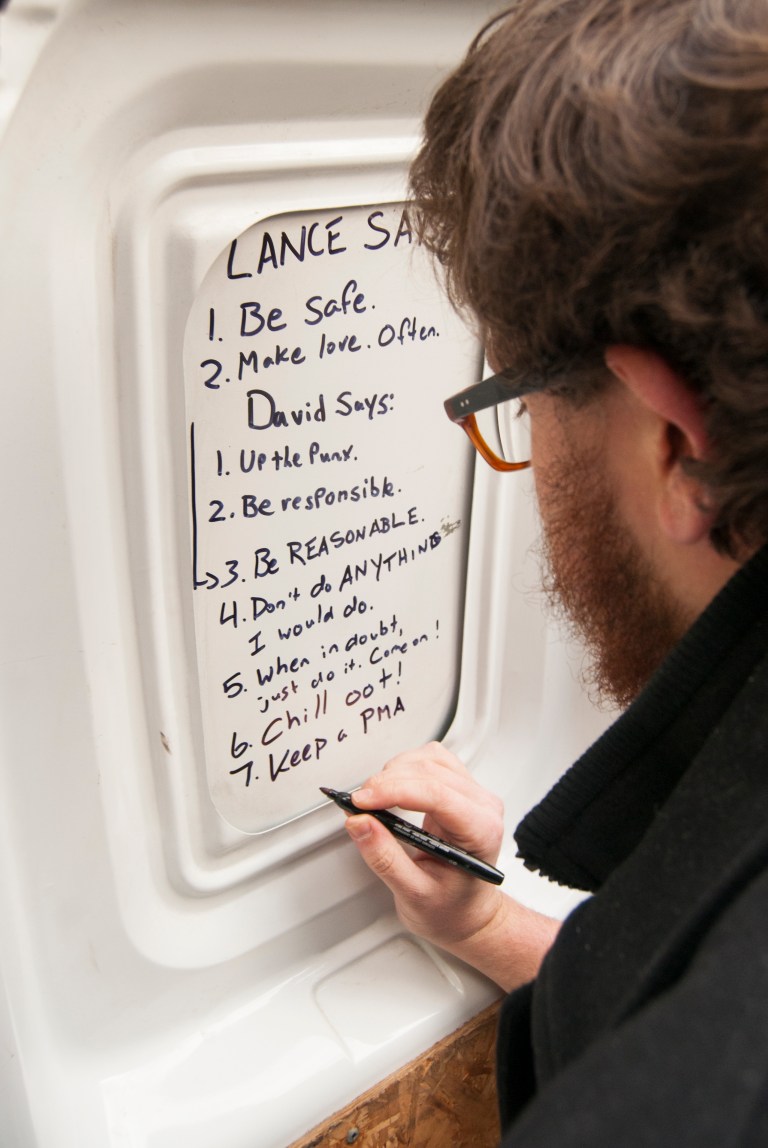 LANCE SA
1. Be safe.
2. Make love. Often.
David Says:
1. Up the Punx.
2. Be responsible.
3. Be REASONABLE.
4. Don't do ANYTHING
I would do.
5. When in doubt,
just do it. Come on!
6. Chill oot!
7. Keep a PMA